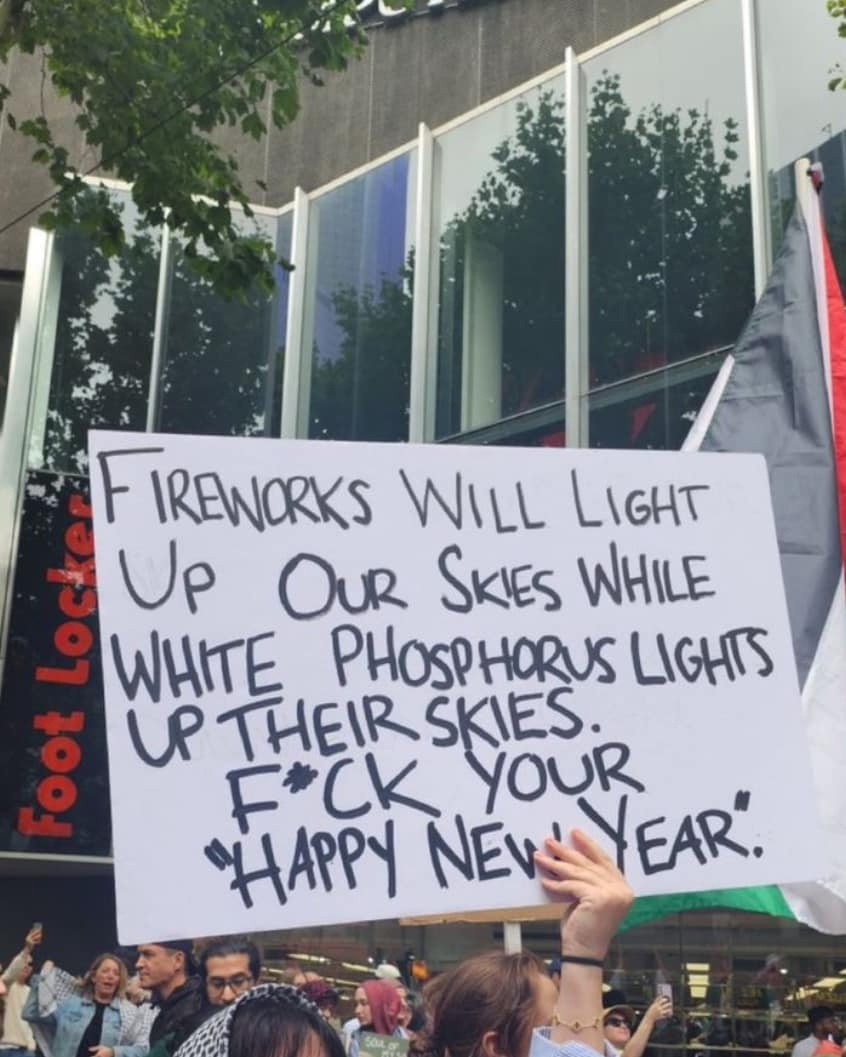 FIREWORKS WILL LIGHT
UP OUR SKIES WHILE
WHITE PHOSPHORUS LIGHTS
UP THEIR SKIES.
F*CK YOUR
"HAPPY NEW YEAR".
Foot Locker
SOUL OF